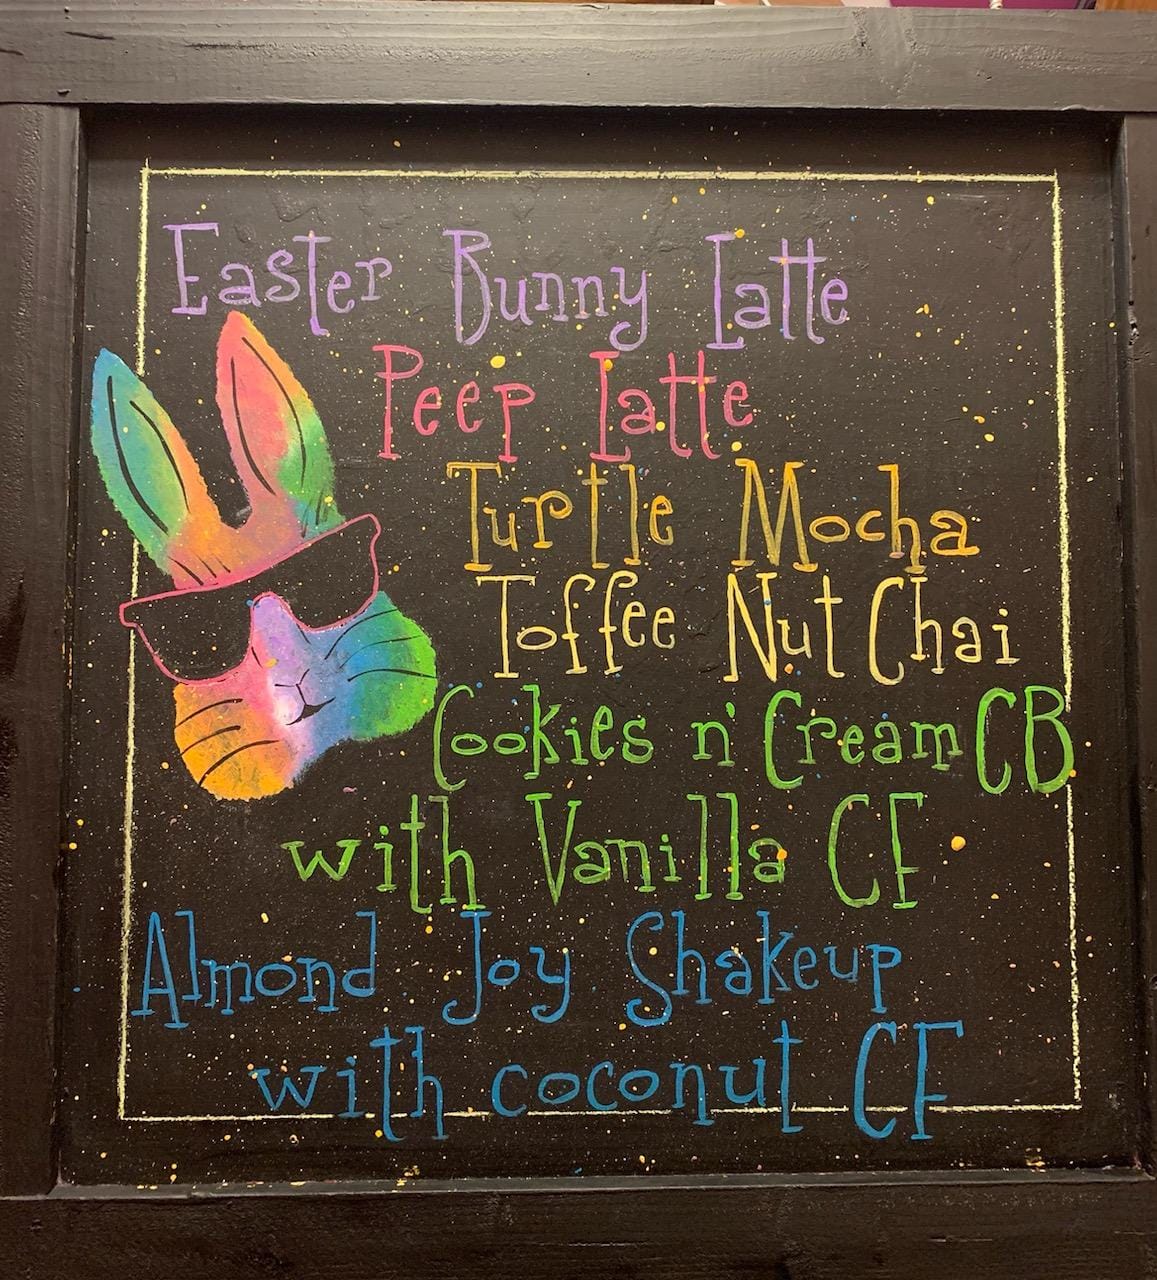 Easter Bunny Latte
Peep Latte
Turtle Mocha
Toffee Nut Chai
Cookies n' Cream CB
with Vanilla CF
Almond Joy Shakeup
with coconut CF